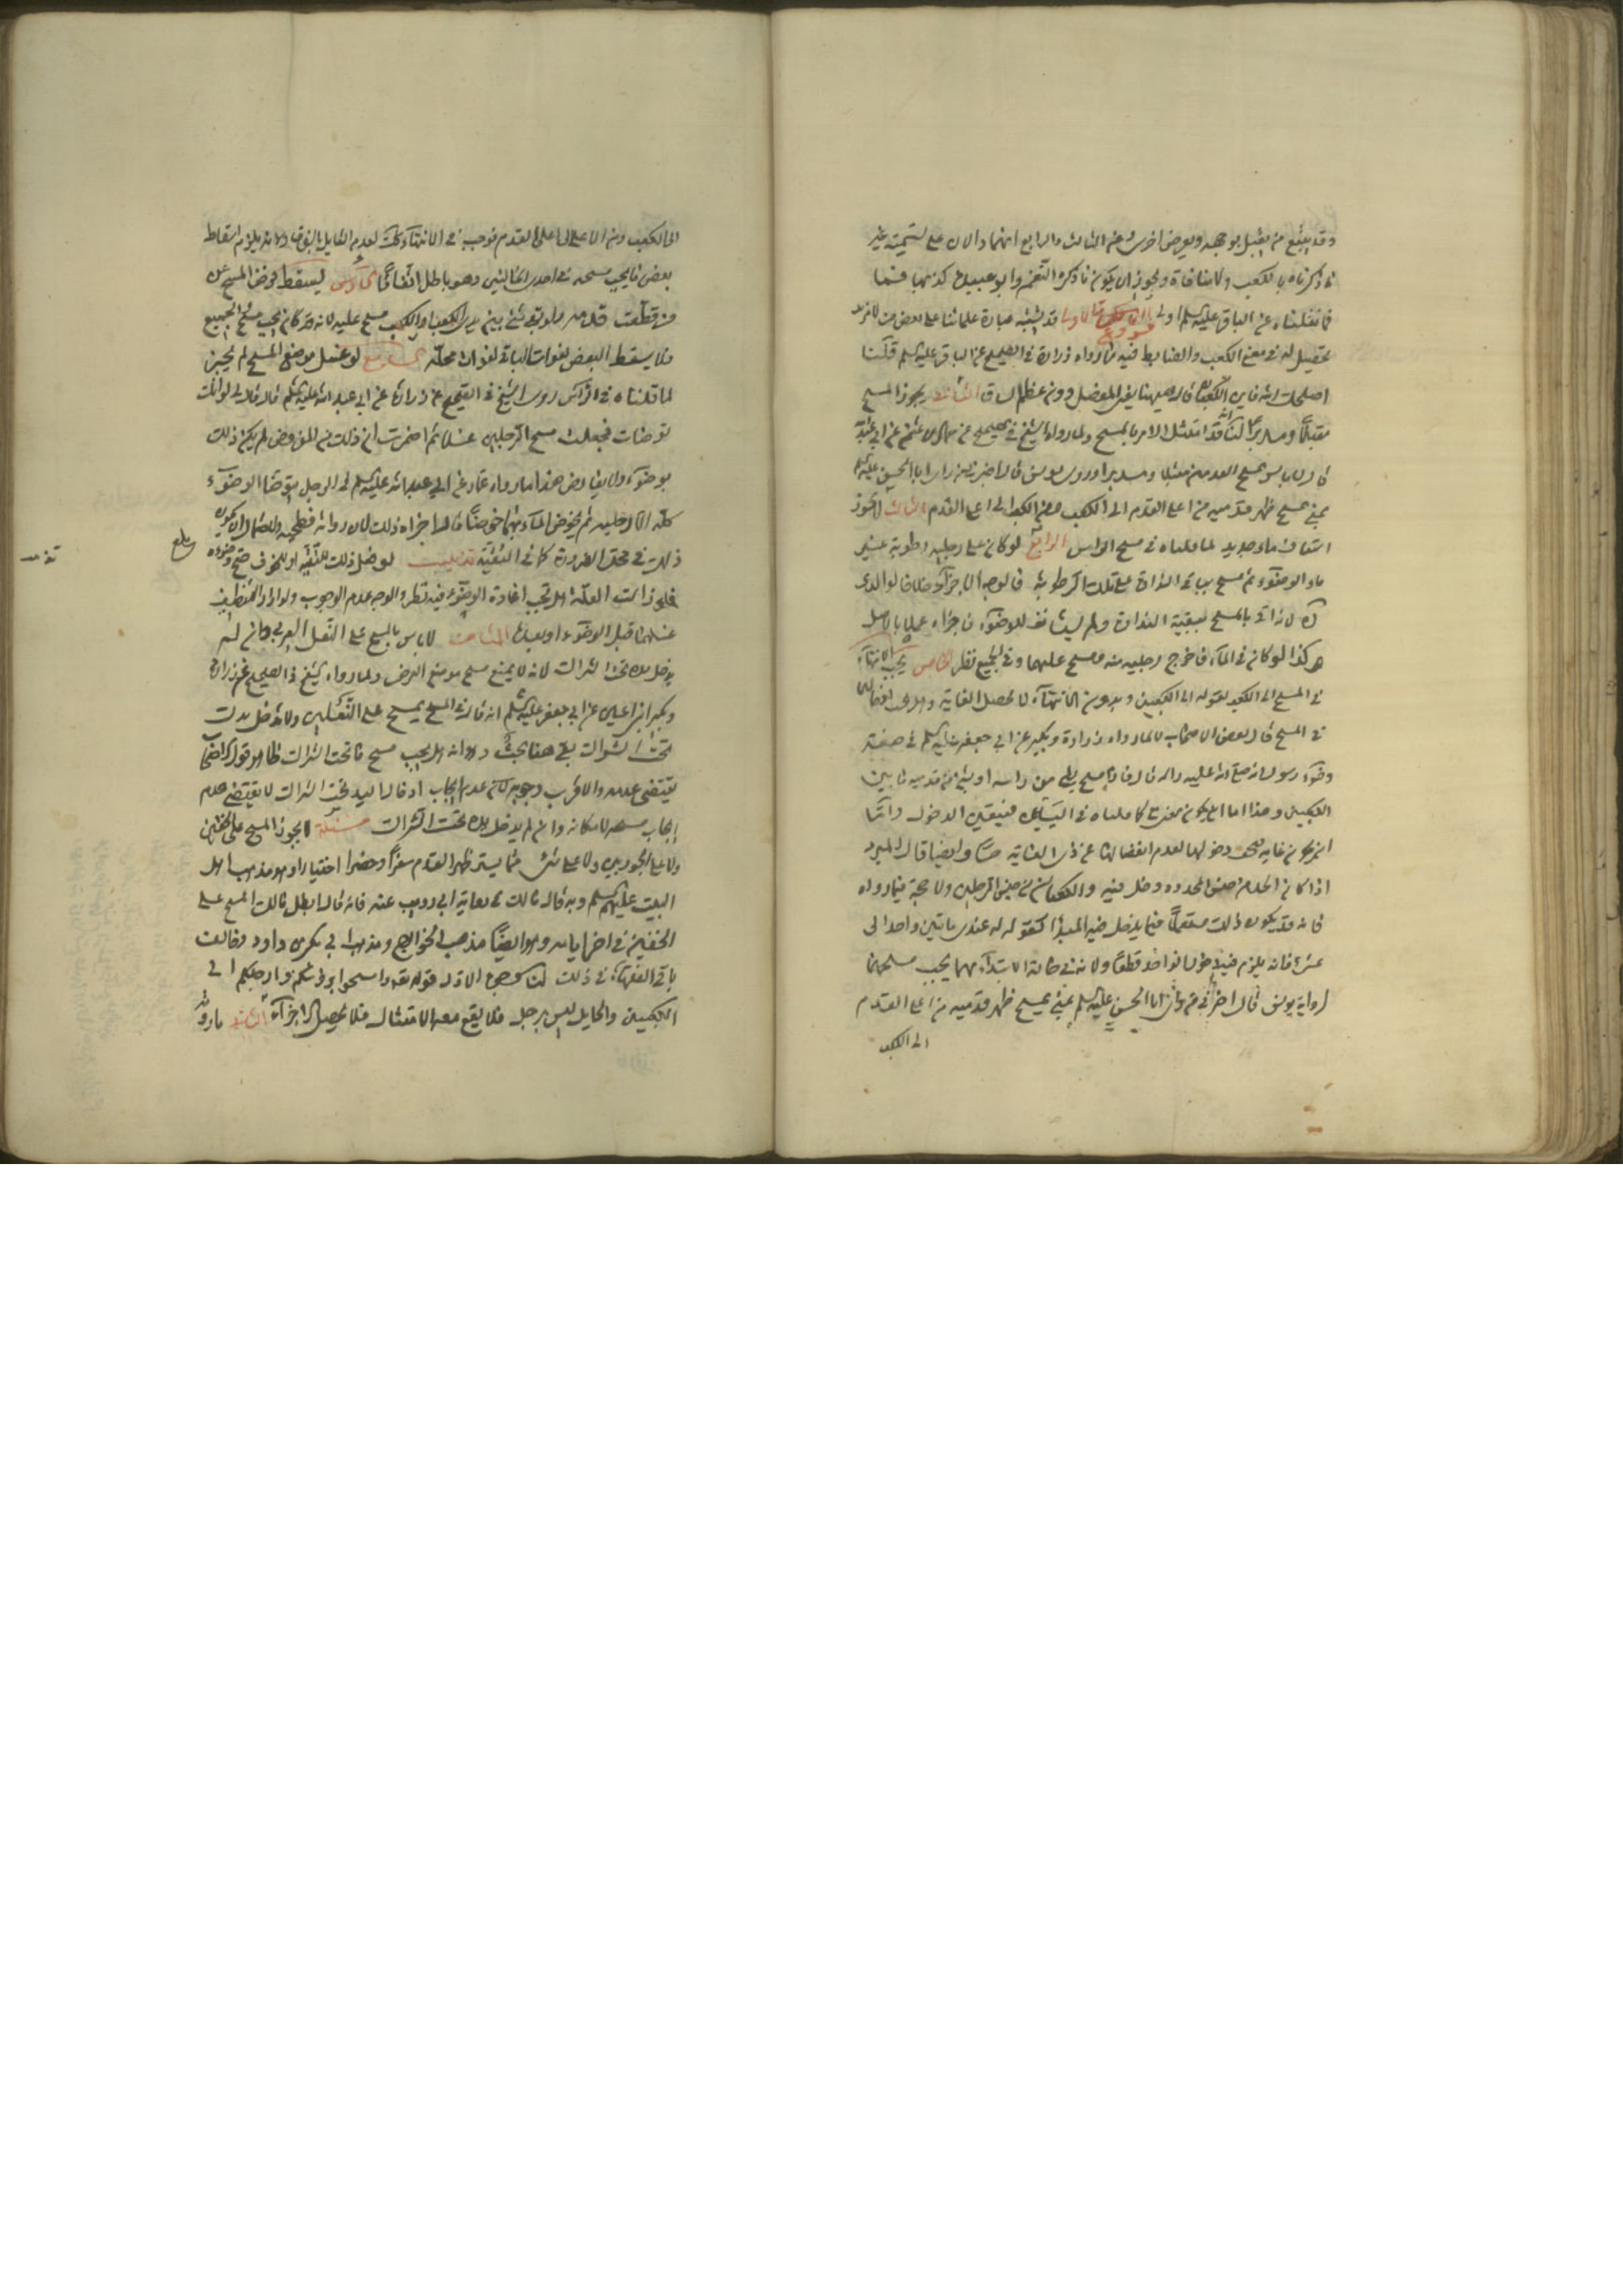 ما ذكرناه بالكعب ولا منافاة ويجوز ان يكون ما ذكره
فما نقلناه عن الباقر عليه السلم اولى فروع الاول قد يشتبه عبارة علمائنا على بعض من لا مزيد
تحصيل له في معنى الكعب والضابط فيه ما رواه زرارة في الصحيح عن الباقر عليه السلم قلنا
اصلحك الله فاين الكعبان قال هيهنا يعني المفصل دون عظم الساق الثاني يجوز المسح
مقبلا ومدبرا لنا انه قد امتثل الامر بالمسح ولما رواه الشيخ في الصحيح عن حماد بن عثمن عن ابي عبد الله
قال لا باس بمسح القدمين مقبلا ومدبرا وروى يونس قال اخبرني من راى ابا الحسن عليه السلم
بمنى يمسح ظهر قدميه من اعلى القدم الى الكعب ومن الكعب الى اعلى القدم الثالث لا يجوز
استيناف ماء جديد لما قلناه في مسح الراس الرابع لو كان على رجليه رطوبة غير
ماء الوضوء ثم مسح بباقي النداوة على تلك الرطوبة فالوجه الاجزاء خلافا لوالدي
لانه اتى بالمسح ببقية النداوة ولم يستانف للوضوء فاجزاه عملا بالاصل
هكذا لو كان في الماء فاخرج رجليه منه ومسح عليهما وفي الجميع نظر الخامس يجب الانتهاء
في المسح الى الكعب لقوله الى الكعبين وبدون الانتهاء لا يحصل الغاية وهل يجب ادخالهما
في المسح قال بعض الاصحاب لا لما رواه زرارة وبكير عن ابي جعفر عليه السلم في صفة
وضوء رسول الله صلى الله عليه واله قال فاذا مسح بشيء من راسه او بشيء من قدميه ما بين
الكعبين وهذا اما ان يكون بمعنى مع كما قلناه في اليدين فيتعين الدخول واما
ان يكون غاية فيجب دخولها لعدم انفصالها عن ذي الغاية حسا وايضا قال المبرد
اذا كان الحد من جنس المحدود دخل فيه والكعبان من جنس الرجلين ولا حجة فيما رووه
فانه قد يكون ذلك مستعملا فيما يدخل فيه المبدأ كقوله له عندي مائتين واحد الى
عشرة فانه يلزم فيه دخول الواحد قطعا ولانه في حالة الابتداء بهما يجب مسحهما
لرواية يونس قال اخبرني من راى ابا الحسن عليه السلم بمنى يمسح ظهر قدميه من اعلى القدم
الى الكعب
الى الكعب ومن الاعلى الى اعلى القدم فوجب في الانتهاء كذلك لعدم القايل بالفرق ولانه يلزم اسقاط
بعض ما يجب مسحه في احدى الحالتين وهو باطل اتفاقا السادس يسقط فرض المسح عن
من قطعت قدمه ولو بقي شيء بينه بين الكعب او الكعب مسح عليه لانه قد كان يجب مسح الجميع
فلا يسقط البعض لفوات الباقي لفوات محله السابع لو غسل موضع المسح لم يجز
لما قلناه في الراس روى الشيخ في الصحيح عن زرارة عن ابي عبد الله عليه السلم قال قال لي لو انك
توضات فجعلت مسح الرجلين غسلا ثم اضمرت ان ذلك من المفروض لم يكن ذلك
بوضوء ولا يعارض هذا ما رواه عمار عن ابي عبد الله عليه السلم في الرجل يتوضا الوضوء
كله الا رجليه ثم يخوض الماء بهما خوضا قال اجزاه ذلك لان رواته فطحية ولاحتمال ان يكون
ذلك في محل الضرورة كما في التقية تذنيب لو فعل ذلك للتقية او للخوف صح وضوءه
فلو زالت العلة هل تجب اعادة الوضوء فيه نظر والوجه عدم الوجوب ولو اراد التنظيف
غسلهما قبل الوضوء او بعده الثامن لا باس بالمسح على النعل العربي وان لم
يدخل يده تحت الشراك لانه لا يمنع مسح موضع الفرض ولما رواه الشيخ في الصحيح عن زرارة
وبكير ابني اعين عن ابي جعفر عليه السلم انه قال في المسح يمسح على النعلين ولا تدخل يدك
تحت الشراك بقي هنا بحث وهو انه هل يجب مسح ما تحت الشراك ظاهر قول اصحابنا
يقتضي عدمه والاقرب وجوبه لان عدم ايجاب ادخال اليد تحت الشراك لا يقتضي عدم
ايجاب مسحه لامكانه وان لم يدخل يده تحت الشراك مسئلة لا يجوز المسح على الخفين
ولا على الجوربين ولا على شيء مما يستر ظهر القدم سفرا وحضرا اختيارا وهو مذهب اهل
البيت عليهم السلم وبه قال مالك في رواية ابن ابي ذويب عنه فانه قال ابطل مالك المسح على
الخفين في اخر ايامه وهو ايضا مذهب الخوارج ومذهب ابي بكر بن داود وخالف
باقي الفقهاء في ذلك لنا وجوه الاول قوله تعالى وامسحوا برؤسكم وارجلكم الى
الكعبين والحايل ليس برجل فلا يقع معه الامتثال فلا يحصل الاجزاء الثاني ما رووه
بلغ